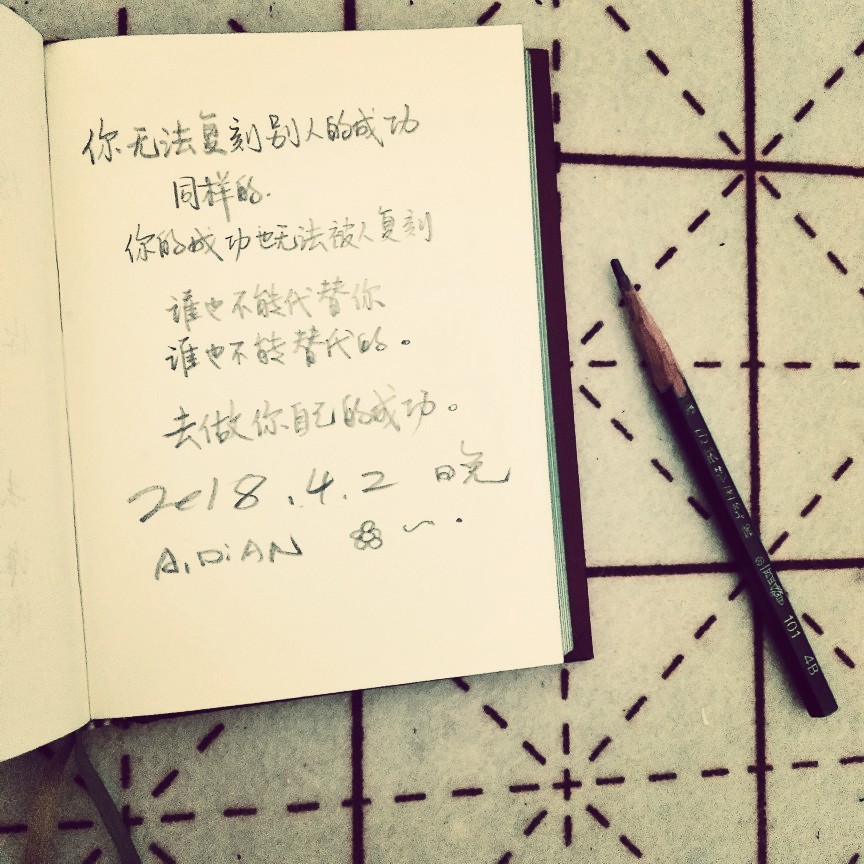 你无法复刻别人的成功
同样的.
你的成功也无法被人复刻
谁也不能代替你
谁也不能替代的。
去做你自己的成功。
2018.4.2 晚
A.DiAN
101 4B